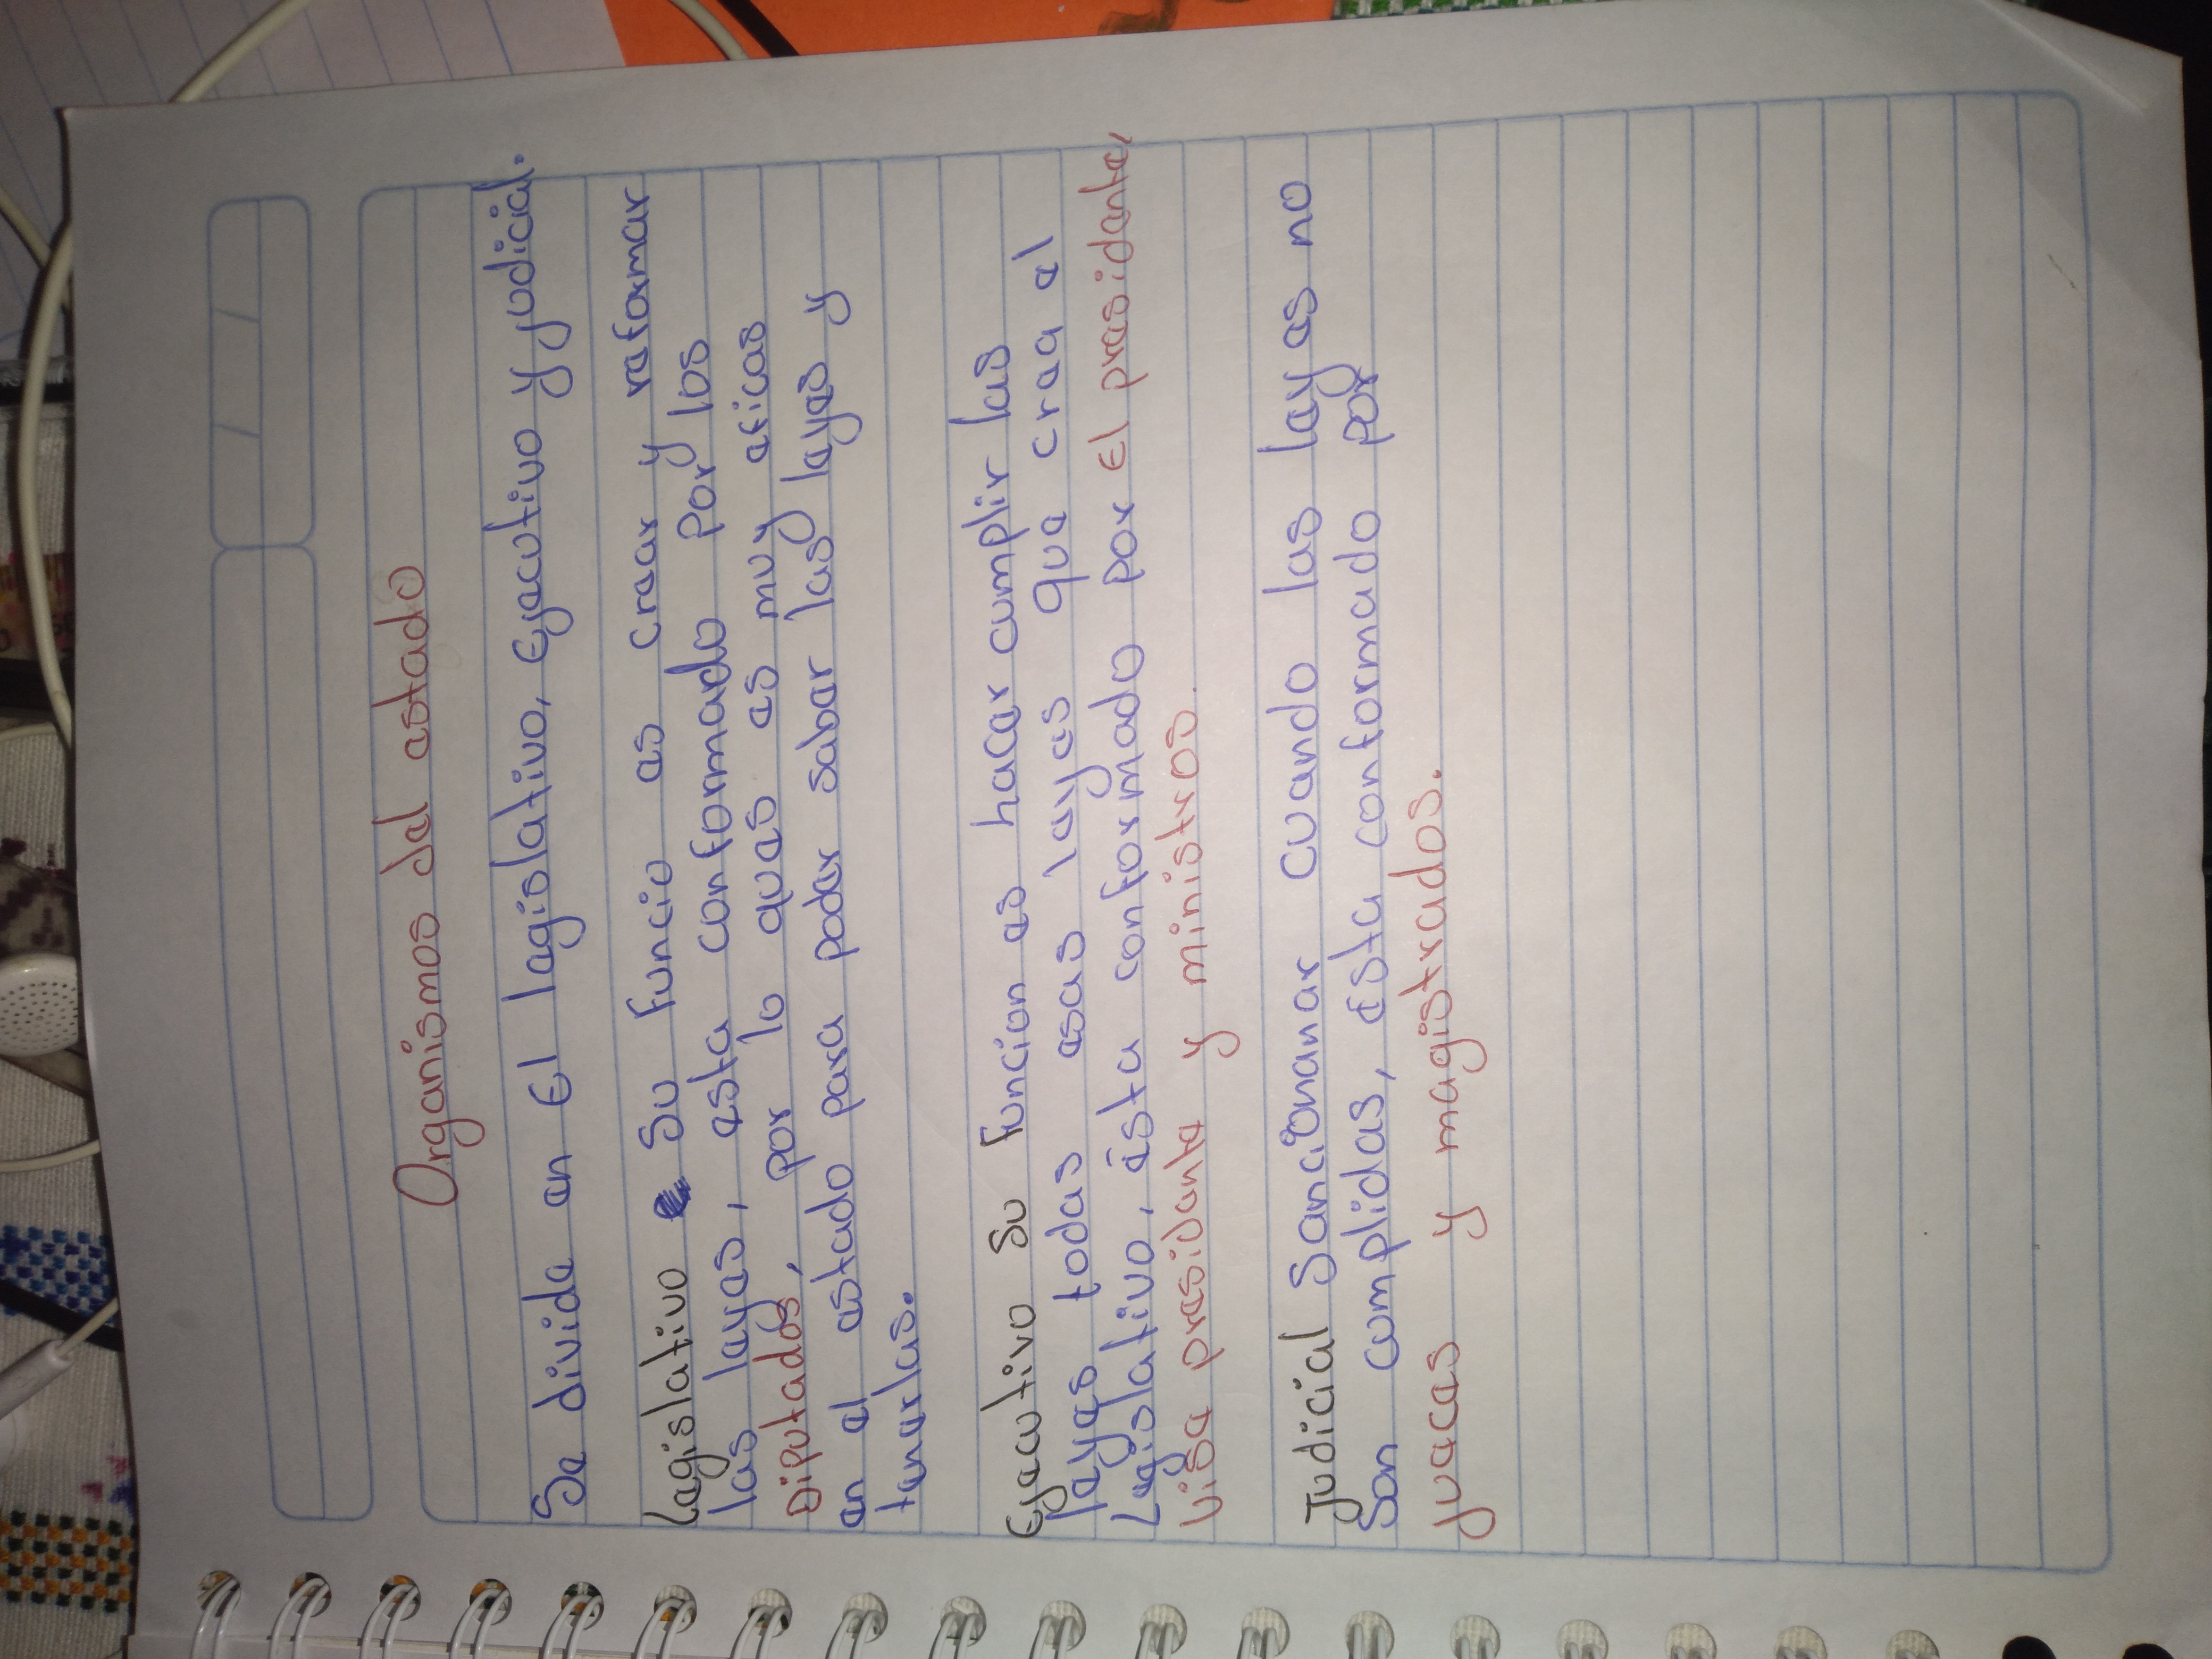 Organismos del estado
Se divide en El legislativo, Ejecutivo y yudicial.
Legislativo Su Funcio es crear y reformar
las leyes, esta conformado por los
Diputados, por lo ques es muy eficas
en el estado para poder saber las leyes y
tenerlas.
Ejecutivo Su Funcion es hacer cumplir las
leyes todas esas leyes que crea el
Legislativo, ésta conformado por El presidente,
visa presidente y ministros.
Judicial Sancionenar cuando las ley es no
Son cumplidas, esta conformado por
jueces y magistrados.